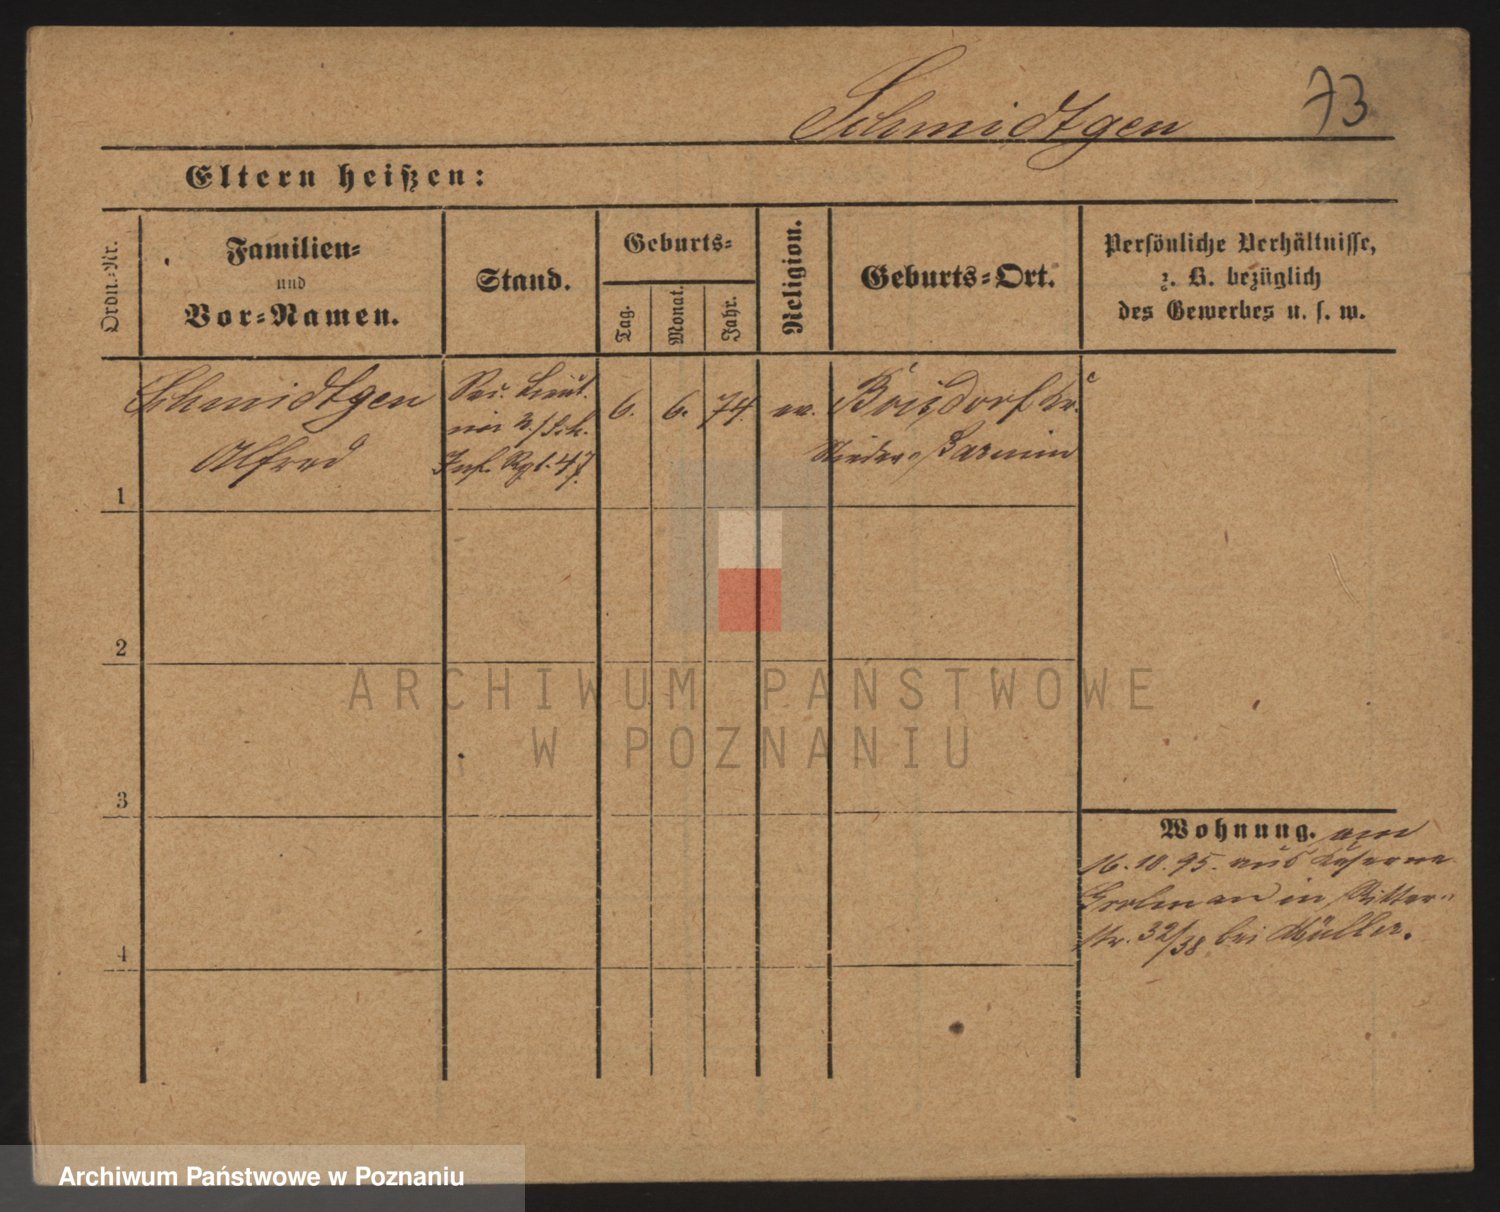 Schmidtgen 73
Eltern heißen:
Ordn.-Nr.
Familien-
und
Vor-Namen.
Stand.
Geburts-
Tag.
Monat.
Jahr.
Religion.
Geburts-Ort.
Persönliche Verhältnisse,
z. B. bezüglich
des Gewerbes u. s. w.
Schmidtgen
Alfred
Sec. Lieut.
im 2.
Inf. Rgt. 47.
6. 6. 74. ev.
Kr.
Nieder- Barnim
1
2
3
4
Wohnung. am
16.10.95. aus Kaserne
Grolman in Ritter-
str. 32/38 bei Müller.
ARCHIWUM PAŃSTWOWE
W POZNANIU
Archiwum Państwowe w Poznaniu